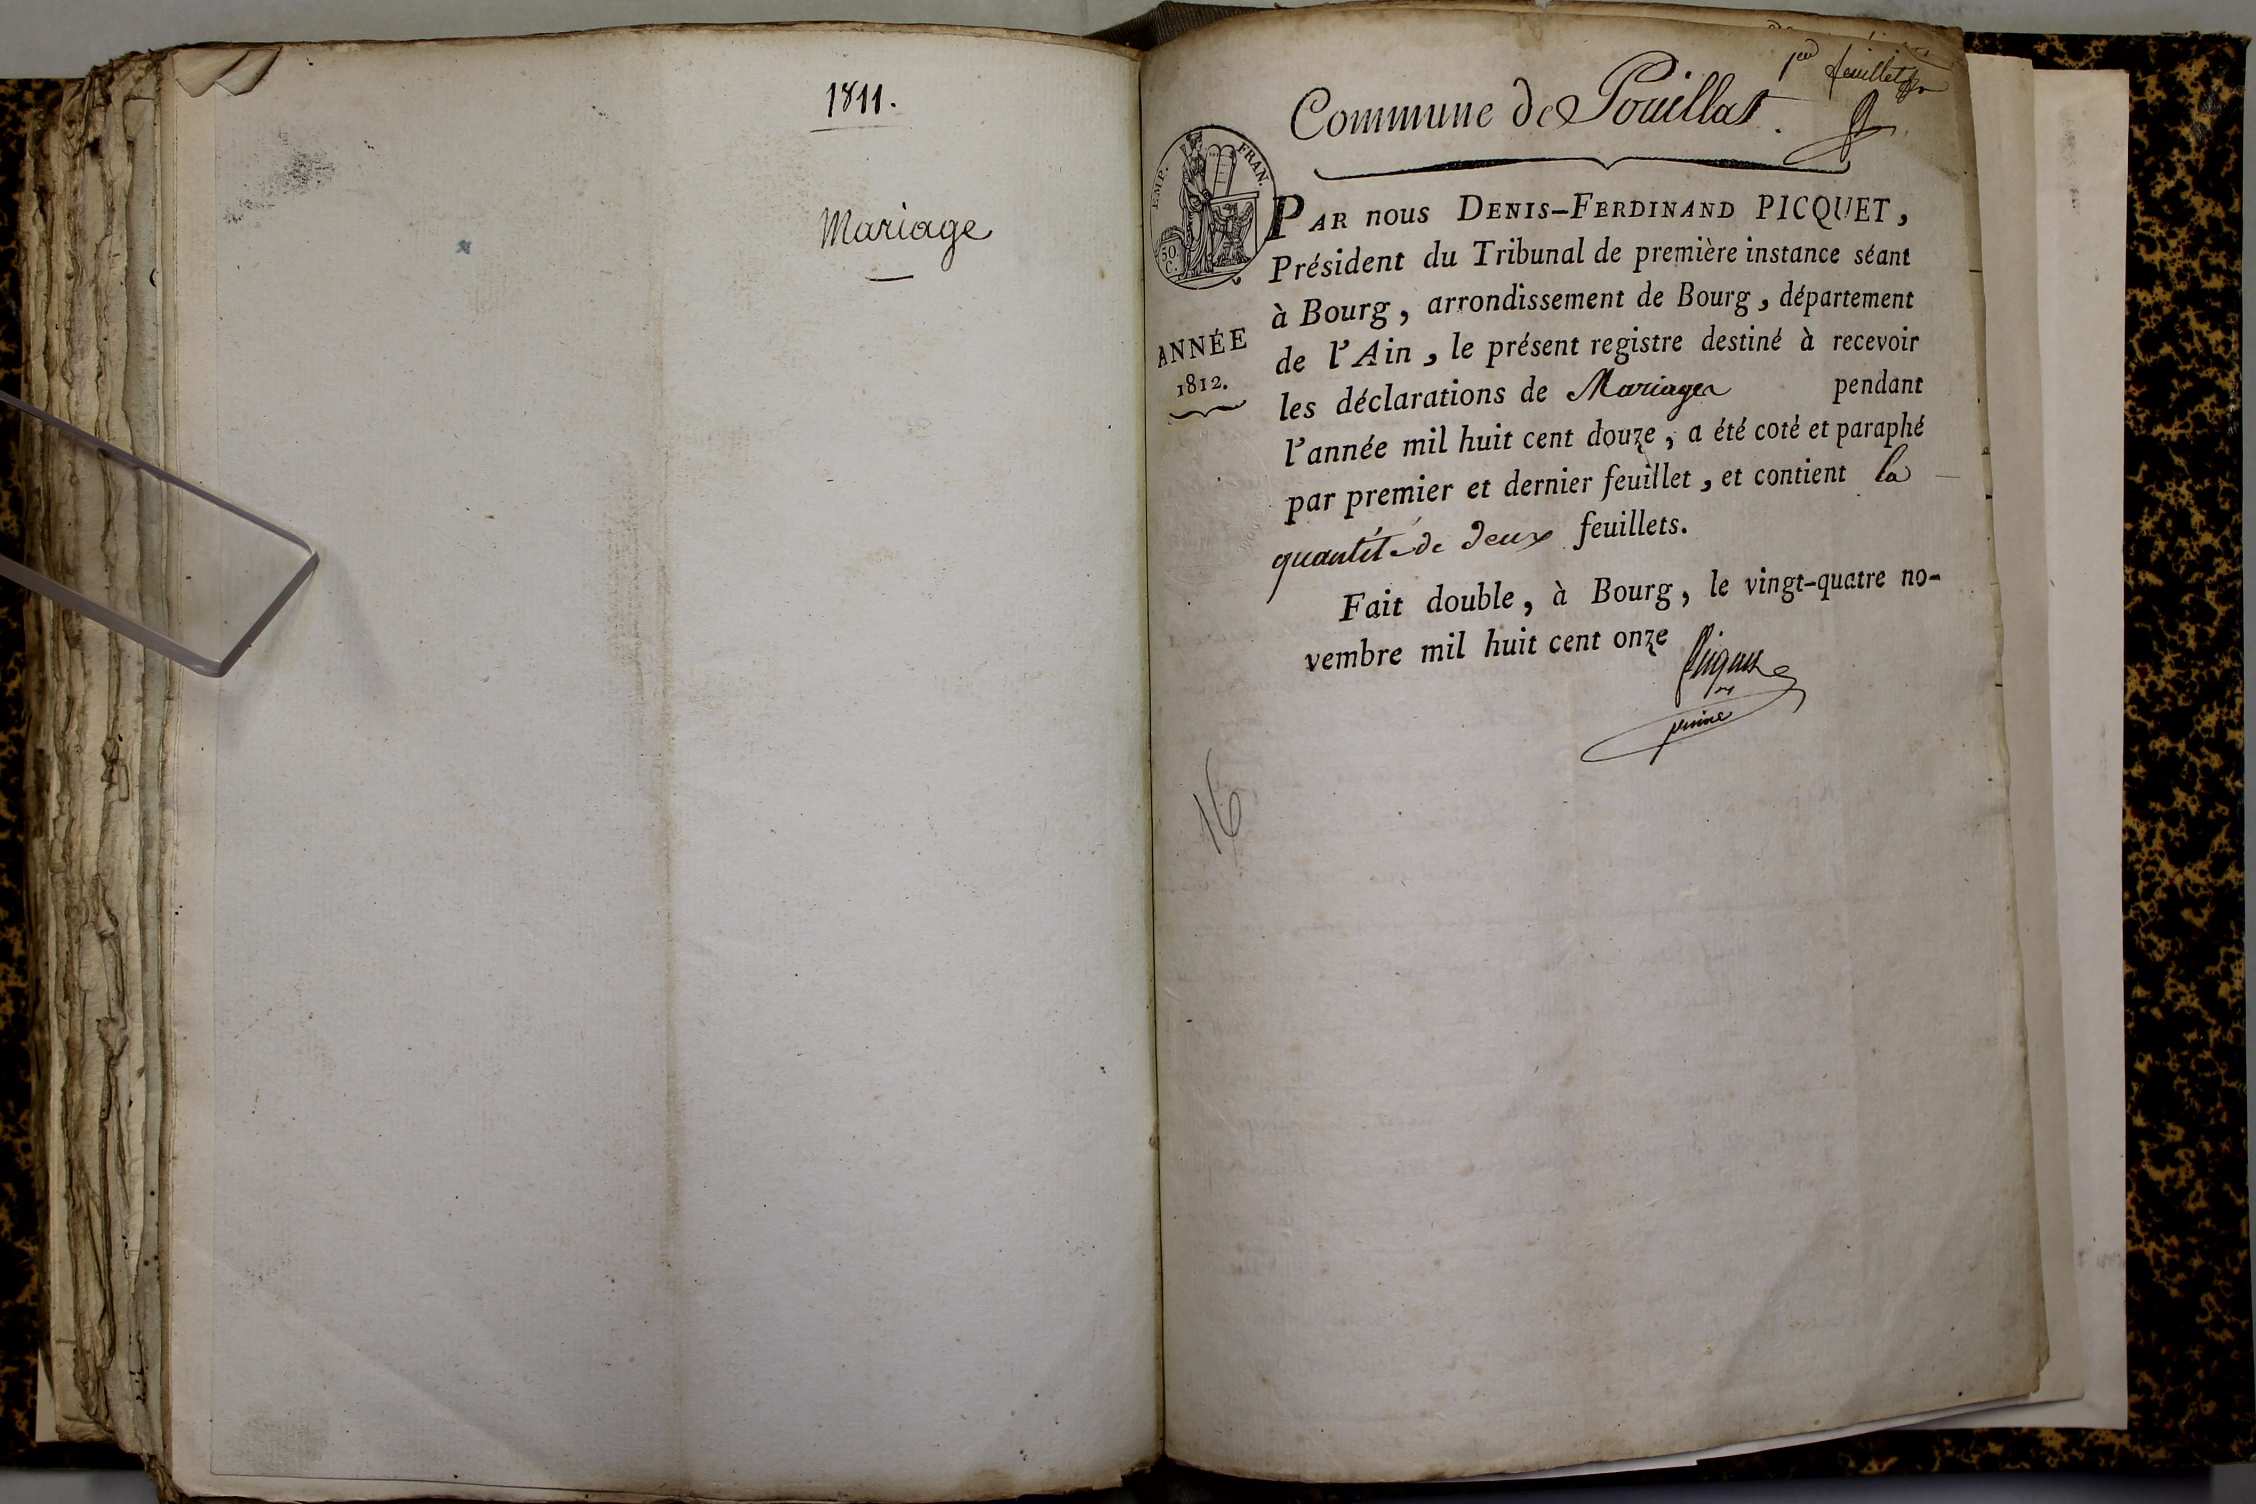 1811.
Mariage
per feuillet
Commune de Pouillat.
EMP. FRAN.
50.
C.
ANNÉE
1812.
PAR nous DENIS-FERDINAND PICQUET,
Président du Tribunal de première instance séant
à Bourg, arrondissement de Bourg, département
de l'Ain, le présent registre destiné à recevoir
les déclarations de Mariages pendant
l'année mil huit cent douze, a été coté et paraphé
par premier et dernier feuillet, et contient la
quantité de deux feuillets.
Fait double, à Bourg, le vingt-quatre no-
vembre mil huit cent onze
Picquet
16